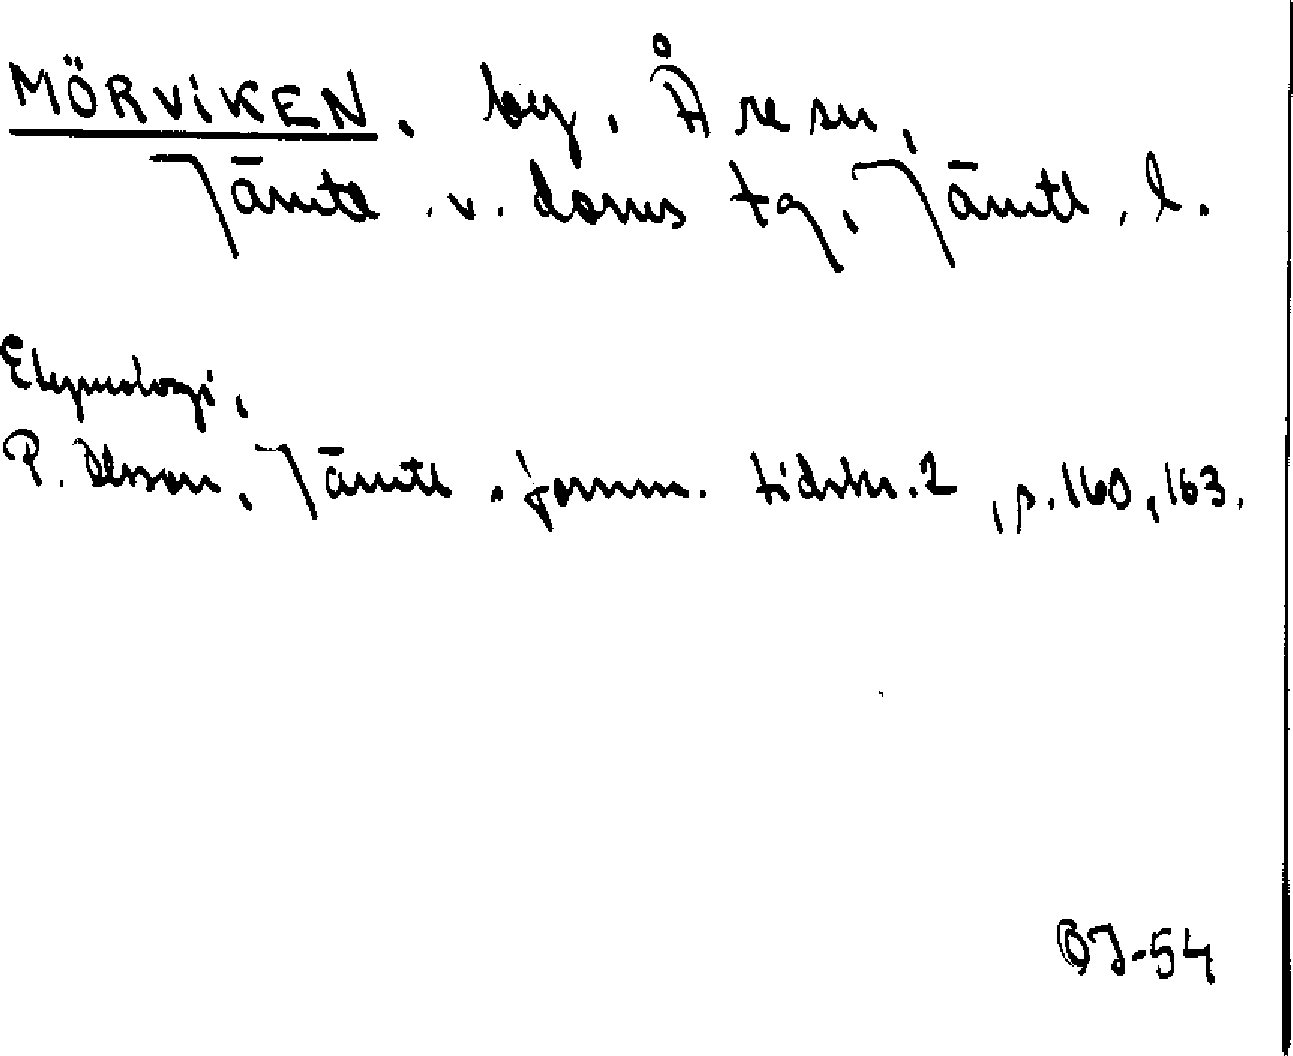 MÖRViKEN. by. Åre sn,
Jämtl. v. doms tg, Jämtl. l.
Etymologi,
P. Olsson, Jämtl. fornm. tidskr. 2, p. 160, 163.
OJ-54